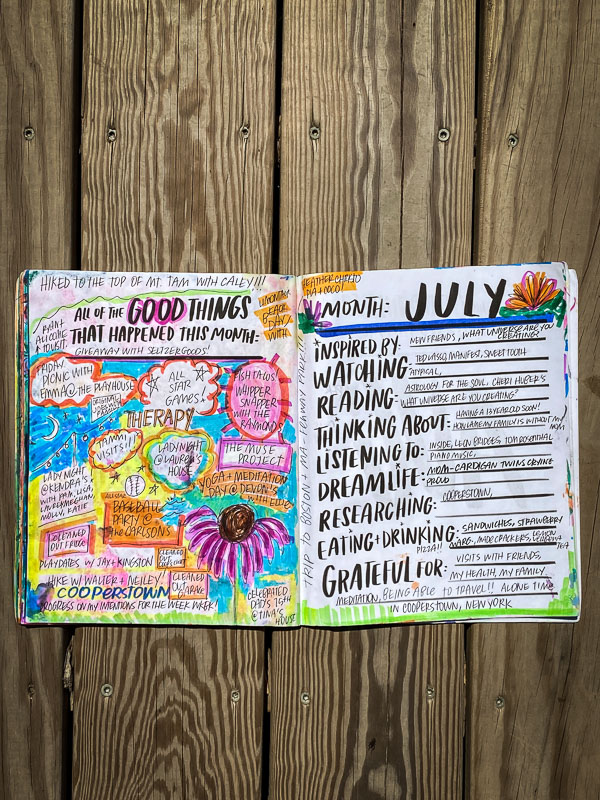 HIKED TO THE TOP OF MT. TAM WITH CALEY!!!
ALL OF THE GOOD THINGS
THAT HAPPENED THIS MONTH:
GIVEAWAY WITH SELTZERGOODS!
RYAN +
TO VISIT
BEACH
DAY
WITH
FRIDAY
PICNIC WITH
EMMA @ THE PLAYHOUSE
ALL
STAR
GAMES!
FISH TACOS
WHIPPER
SNAPPER
WITH THE
RAYMONDS
THERAPY
TAMMI
VISITS!!!
LADY NIGHT
@ LAUREN'S
HOUSE
THE MUSE
PROJECT
YOGA + MEDITATION
DAY @ DEVON'S
LADY NIGHT
@ KENDRA'S
WITH PAM, LISA,
MOLLY, KATIE
BASEBALL
PARTY @
THE CARLSONS
CLEANED
OUT FRIDGE
CLEANED
OUT
PLAYDATES W/ JAY + KINGSTON
HIKE W/ WALTER + NEILEY!
CLEANED
OUT
GARAGE
COOPERSTOWN
PROGRESS ON MY INTENTIONS FOR THE WEEK WEEK!
CELEBRATED
DAD'S 75TH
@ TINA'S
HOUSE
TRIP TO BOSTON + MA + FENWAY PARK!!!
HEATHER CHRISTO
PIA + COCO!
MONTH: JULY
INSPIRED BY: NEW FRIENDS, WHAT UNIVERSE ARE YOU
CREATING?
WATCHING: TED LASSO, MANIFEST, SWEET TOOTH
ATYPICAL,
READING: ASTROLOGY FOR THE SOUL, CHERI HUBER'S
"WHAT UNIVERSE ARE YOU CREATING"
THINKING ABOUT: HAVING A 13 YEAR OLD SOON!
HOW LAME MY FAMILY IS WITHOUT MY
MOM
LISTENING TO: INSIDE, LEON BRIDGES, TOM ROSENTHAL
PIANO MUSIC,
DREAM LIFE: MOM-CARDIGAN TWINS
PROUD
RESEARCHING: COOPERSTOWN,
EATING + DRINKING: SANDWICHES, STRAWBERRY
MARG., MADE CRACKERS, LEMON
PIZZA!!
GRATEFUL FOR: VISITS WITH FRIENDS,
MY HEALTH, MY FAMILY
MEDITATION, BEING ABLE TO TRAVEL!! ALONE TIME
IN COOPERSTOWN, NEW YORK